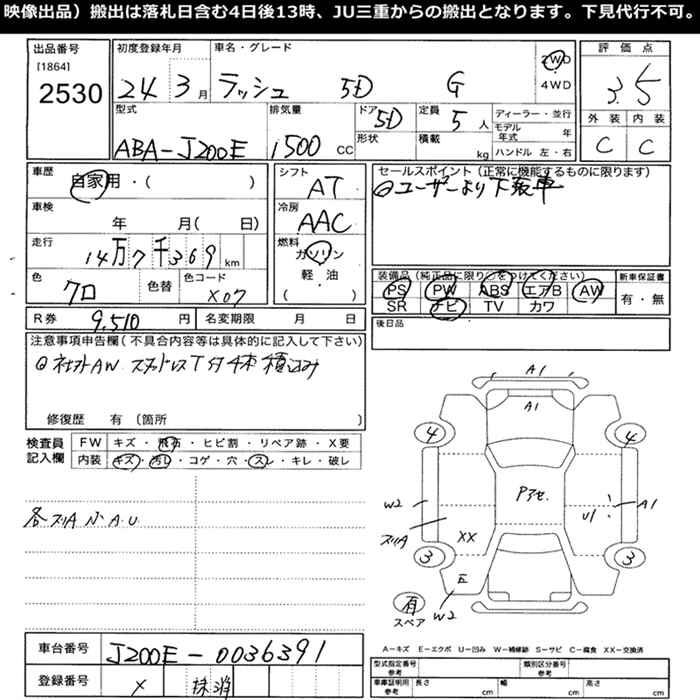 映像出品）搬出は落札日含む4日後13時、JU三重からの搬出となります。下見代行不可。
出品番号
[1864]
2530
初度登録年月
24 3月
車名・グレード
ラッシュ 5D G
2WD
4WD
評価点
3.5
外装 内装
C C
型式
ABA-J200E
排気量
1500 CC
ドア 5D
形状
定員 5人
積載 kg
ディーラー・並行
モデル年式 年
ハンドル 左・右
車歴
自家用・( )
車検
年 月( 日)
走行
14万7千369 km
色
クロ
色替
色コード
X07
シフト
AT
冷房
AAC
燃料
ガソリン
軽・油
( )
セールスポイント（正常に機能するものに限ります）
◎ユーザーより下取車
装備品（純正品に限り○をつけてください）
PS PW ABS エアB AW
SR ナビ TV カワ
新車保証書
有・無
後日品
R券 9,510 円
名変期限 月 日
注意事項申告欄（不具合内容等は具体的に記入して下さい）
◎社外AW スタッドレスT付4本積込み
修復歴 有 〔箇所
検査員記入欄
FW キズ・飛石・ヒビ割・リペア跡・X要
内装 キズ・汚レ・コゲ・穴・スレ・キレ・破レ
各スリA 小A.U
A1
A1
4
4
W2
スリA
Pアセ.
U1
A1
XX
3
3
E
W2
有
スペア
A=キズ E=エクボ U=凹み W=補修跡 S=サビ C=腐食 XX=交換済
車台番号
J200E-0036391
登録番号
× 抹消
型式指定番号
参考
類別区分番号
参考
車庫証明用
参考
長さ cm
幅 cm
高さ cm